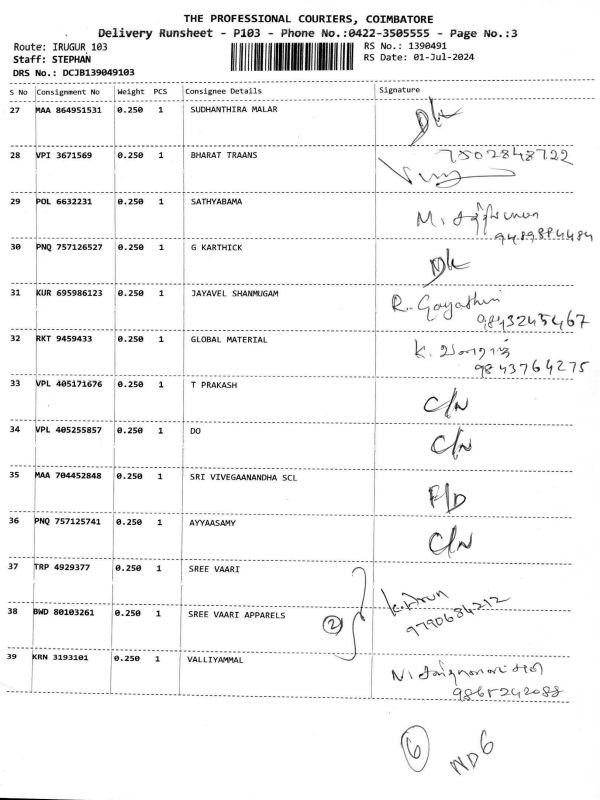 THE PROFESSIONAL COURIERS, COIMBATORE
Delivery Runsheet - P103 - Phone No.:0422-3505555 - Page No.:3
Route: IRUGUR 103 RS No.: 1390491
Staff: STEPHAN RS Date: 01-Jul-2024
DRS No.: DCJB139049103
S No Consignment No Weight PCS Consignee Details Signature
27 MAA 864951531 0.250 1 SUDHANTHIRA MALAR
28 VPI 3671569 0.250 1 BHARAT TRAANS 7502848722
29 POL 6632231 0.250 1 SATHYABAMA M.
9489894484
30 PNQ 757126527 0.250 1 G KARTHICK
31 KUR 695986123 0.250 1 JAYAVEL SHANMUGAM R. Gayathri
9843245467
32 RKT 9459433 0.250 1 GLOBAL MATERIAL K.
9843764275
33 VPL 405171676 0.250 1 T PRAKASH C/N
34 VPL 405255857 0.250 1 DO C/N
35 MAA 704452848 0.250 1 SRI VIVEGAANANDHA SCL
36 PNQ 757125741 0.250 1 AYYAASAMY C/N
37 TRP 4929377 0.250 1 SREE VAARI K. Arun
38 BWD 80103261 0.250 1 SREE VAARI APPARELS 2 9790684212
39 KRN 3193101 0.250 1 VALLIYAMMAL N.
9865242088
6 ND6